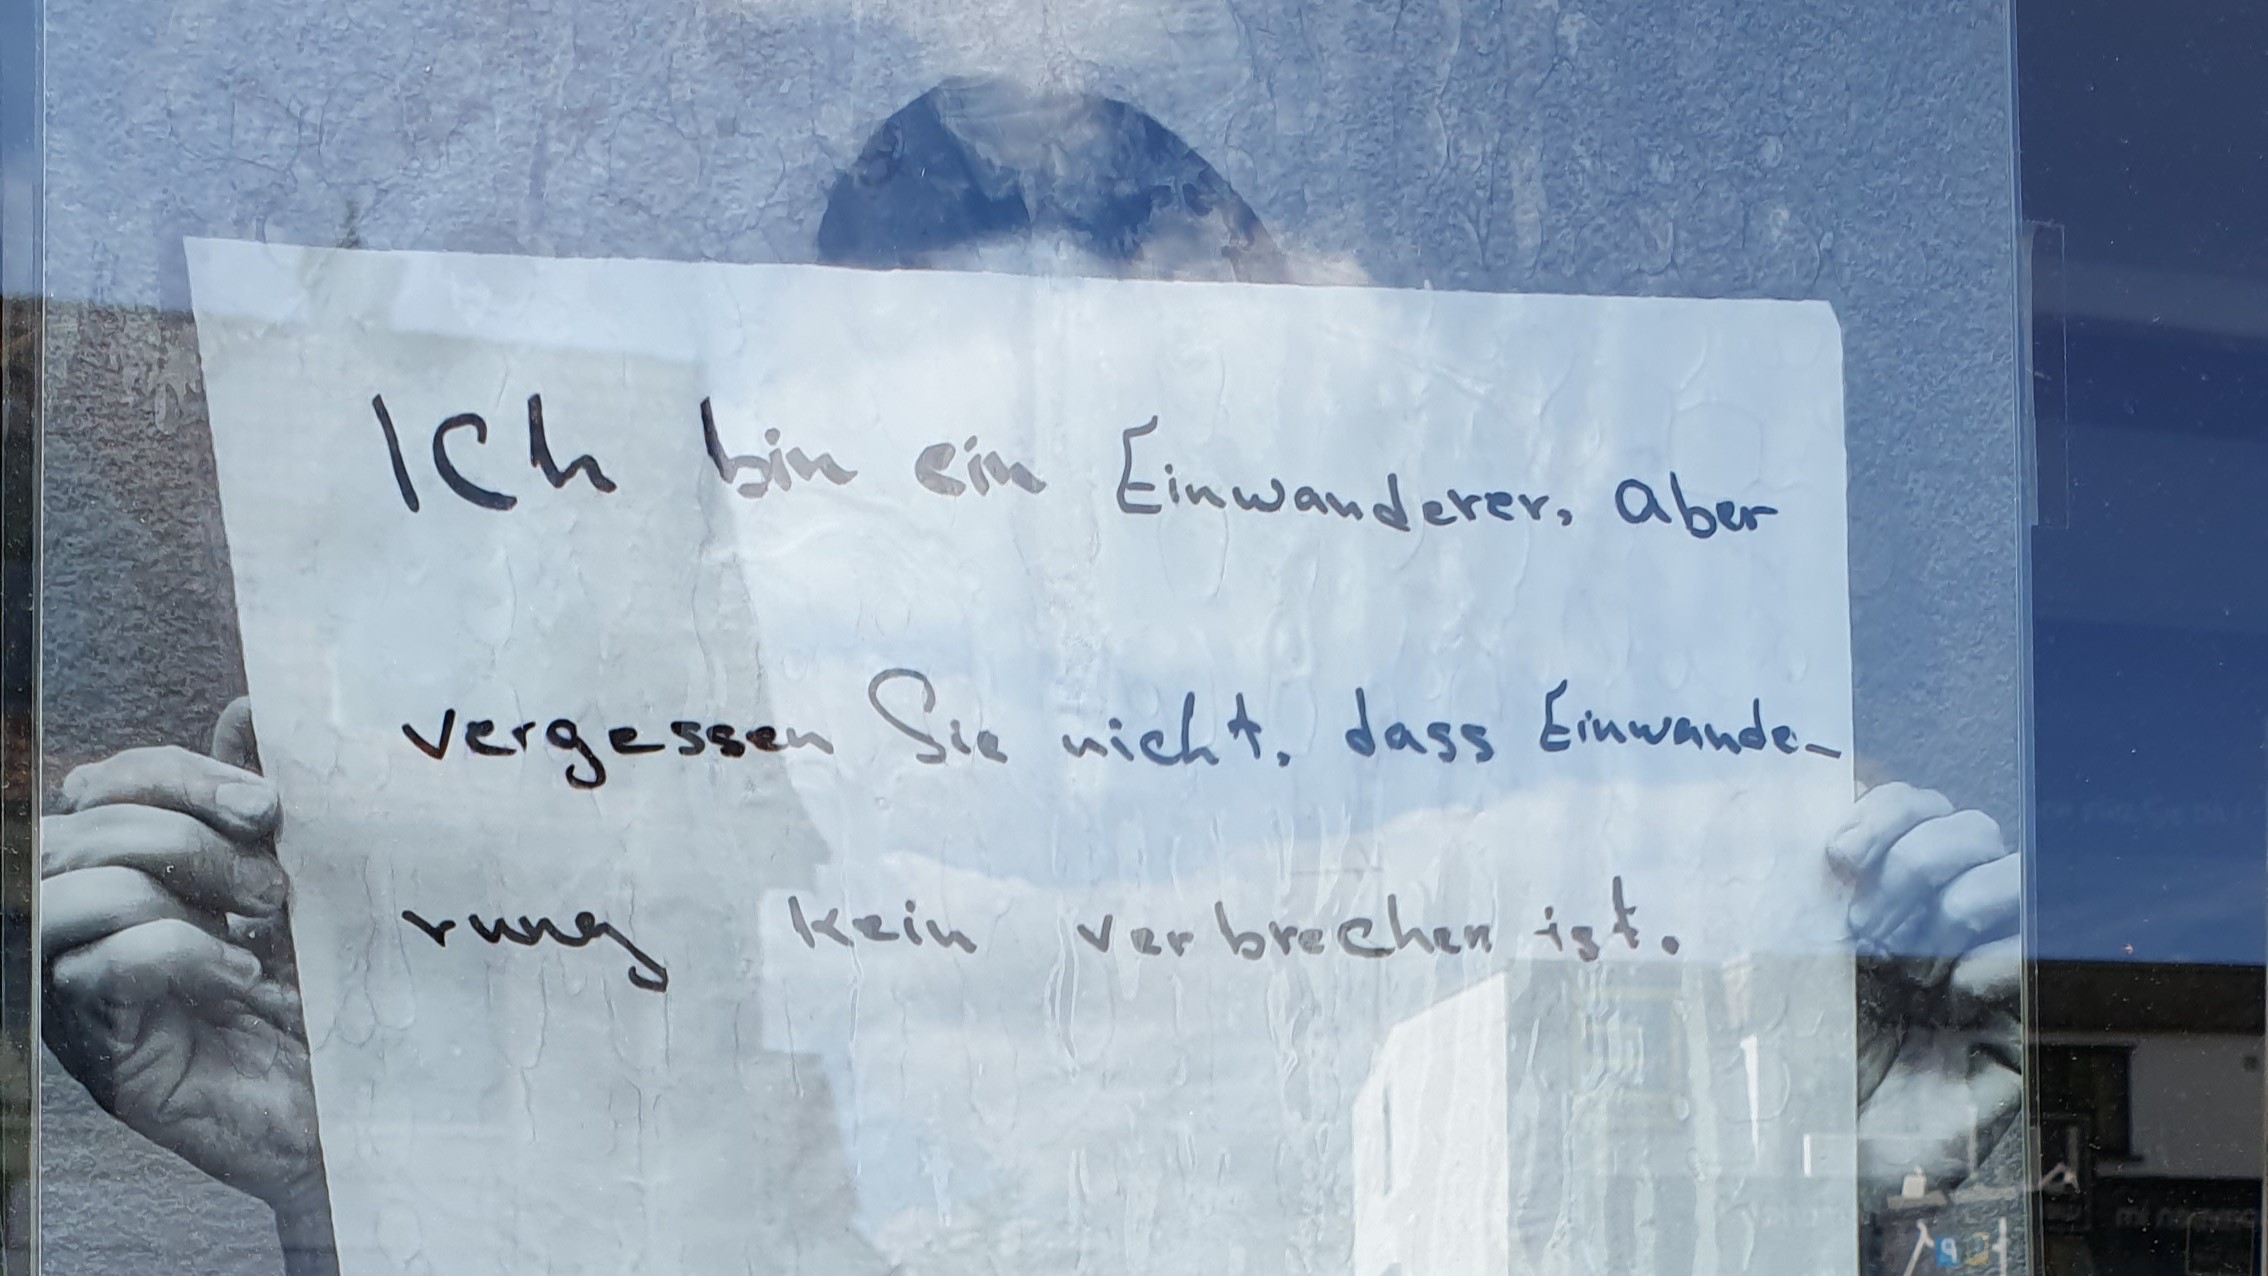 Ich bin ein Einwanderer, aber
vergessen Sie nicht, dass Einwande-
rung kein verbrechen ist.